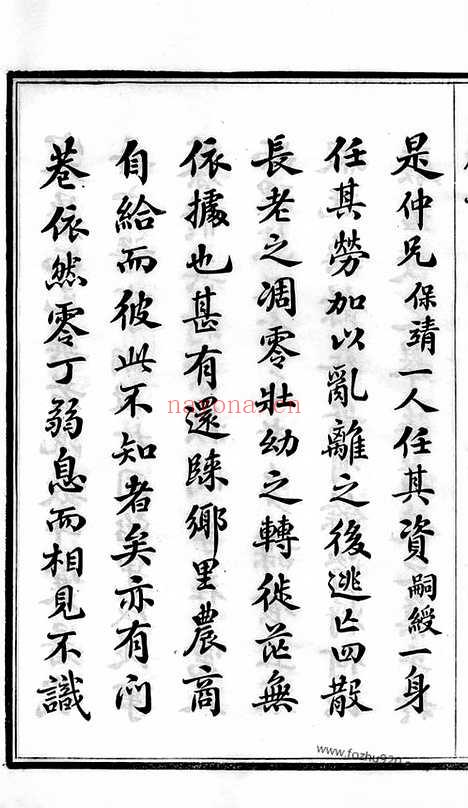 是仲兄保靖一人任其資嗣綬一身
任其勞加以亂離之後逃亡四散
長老之凋零壯幼之轉徙茫無
依據也甚有還踈鄉里農商
自給而彼此不知者矣亦有門
巷依然零丁弱息而相見不識
nayona.cn